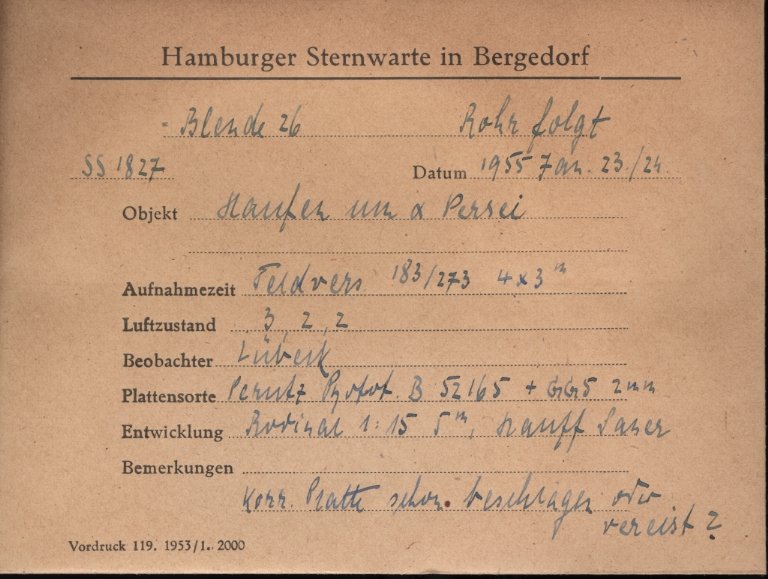 Hamburger Sternwarte in Bergedorf
Blende 26 Rohr folgt
SS 1827 Datum 1955 Jan. 23./24.
Objekt Haufen um α Persei
Aufnahmezeit Feldvers 183/273 4x3ᵐ
Luftzustand 3, 2, 2
Beobachter Lübeck
Plattensorte Perutz Photot. B 52165 + GG5 2mm
Entwicklung Rodinal 1:15 5ᵐ, Hauff Sauer
Bemerkungen
Korr. Platte schon beschlagen oder
vereist?
Vordruck 119. 1953/1. 2000